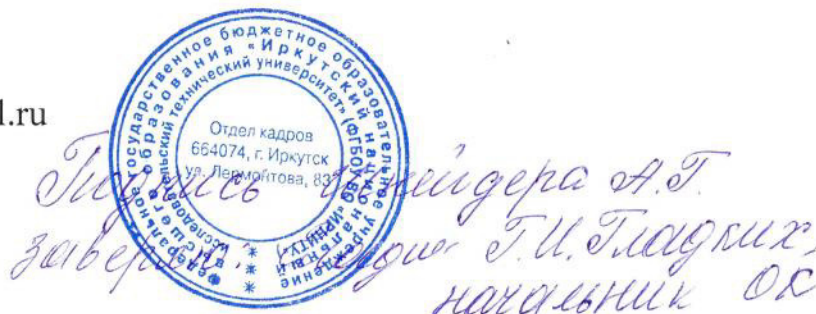 l.ru
Федеральное государственное бюджетное образовательное учреждение
высшего образования «Иркутский национальный
исследовательский технический университет» (ФГБОУ ВО «ИРНИТУ»)
Отдел кадров
664074, г. Иркутск
ул. Лермонтова, 83
Подпись Шнейдера А.Г.
заверяю: Т.И. Гладких,
начальник ОК